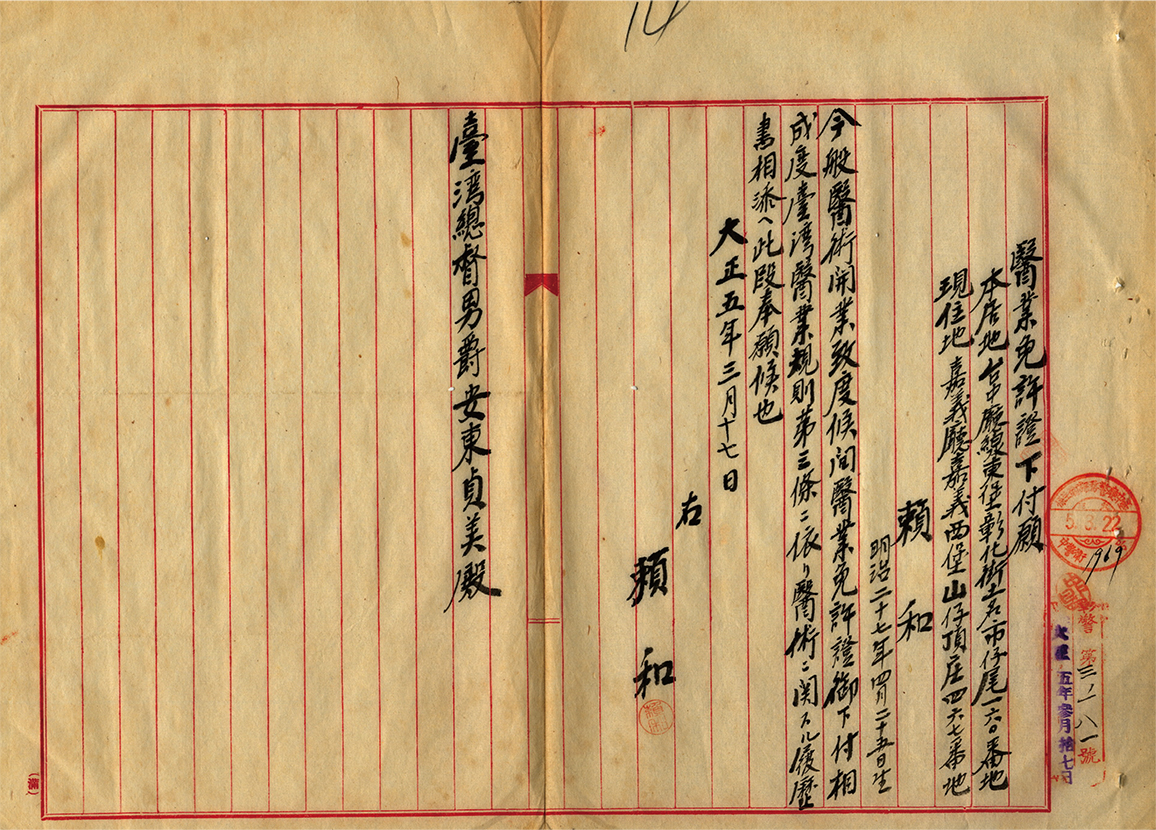 醫業免許證下付願
本居地台中廳線東堡彰化街土名市仔尾一六〇番地
現住地嘉義廳嘉義西堡山仔頂庄四六七番地
賴和
明治二十七年四月二十五日生
今般醫術開業致度候間醫業免許證御下付相
成度臺湾醫業規則第三條ニ依リ醫術ニ関スル履歴
書相添ヘ此段奉願候也
大正五年三月十七日
右
賴和
臺湾總督男爵安東貞美殿
5.3.22
1919
警第三八一號
大正五年參月拾七日
14